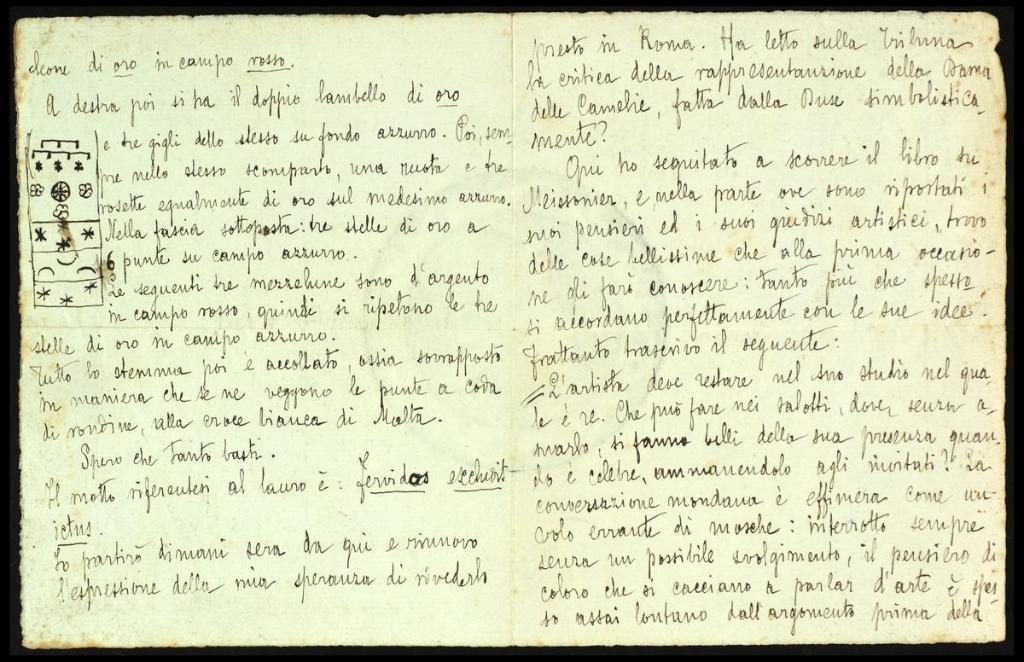 leone di oro in campo rosso.
A destra poi si ha il doppio lambello di oro
e tre gigli dello stesso su fondo azzurro. Poi, sem-
pre nello stesso scomparto, una ruota e tre
rosette egualmente di oro sul medesimo azzurro.
Nella fascia sottoposta: tre stelle di oro a
6 punte su campo azzurro.
Le seguenti tre mezzelune sono d'argento
in campo rosso, quindi si ripetono le tre
stelle di oro in campo azzurro.
Tutto lo stemma poi è accollato, ossia sovrapposto
in maniera che se ne veggono le punte a coda
di rondine, alla croce bianca di Malta.
Spero che tanto basti.
Il motto riferentesi al lauro è: Fervidos excludit
ictus.
Io partirò dimani sera da qui e rinnovo
l'espressione della mia speranza di rivederla
presto in Roma. Ha letto sulla Tribuna
la critica della rappresentanzione della Dama
delle Camelie, fatta dalla Duse simbolistica-
mente?
Qui ho seguitato a scorrere il libro su
Meissonier, e, nella parte ove sono riportati i
suoi pensieri ed i suoi giudizi artistici, trovo
delle cose bellissime che alla prima occasio-
ne gli farò conoscere: tanto più che spesso
si accordano perfettamente con le sue idee.
Frattanto trascrivo il seguente:
= L'artista deve restare nel suo studio nel qua-
le è re. Che può fare nei salotti, dove, senza a-
marlo, si fanno belli della sua presenza quan-
do è celebre, ammanendolo agli invitati? La
conversazione mondana è effimera come un
volo errante di mosche: interrotto sempre
senza un possibile svolgimento, il pensiero di
coloro che si cacciano a parlar d'arte è spes-
so assai lontano dall'argomento prima della